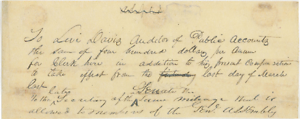 To Levi Davis Auditor of Public Accounts
the sum of four hundred dollars per Anum
for Clerk hire in addition to his present Compensation
to take effect from the last day of March
Senate
to the Secretary of the same mileage that is
allowed to members of the Genl Assembly